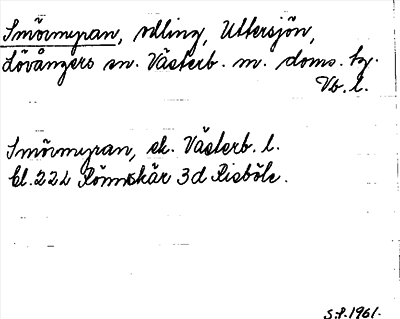 Smörmyran, odling, Uttersjön,
Lövångers sn. Västerb. m. doms. tg.
Vb. l.
Smörmyran, ek. Västerb. l.
bl. 22L Rönnskär 3d Risböle.
S.P. 1961.